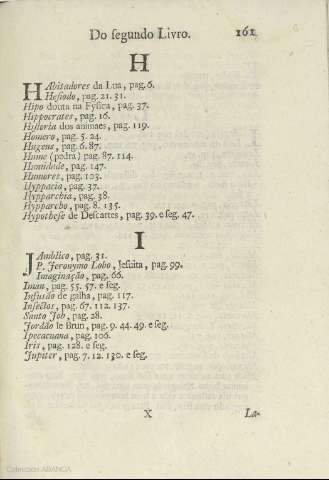 Do segundo Livro. 161
H
HAbitadores da Lua, pag. 6.
Hesiodo, pag. 21. 31.
Hipo douta na Fysica, pag. 37.
Hippocrates, pag. 16.
Historia dos animaes, pag. 119.
Homero, pag. 5. 24.
Hugens, pag. 6. 87.
Hume (pedra) pag. 87. 114.
Humidade, pag. 147.
Humores, pag. 103.
Hyppacia, pag. 37.
Hypparchia, pag. 38.
Hypparcho, pag. 8. 135.
Hypothese de Descartes, pag. 39. e seg. 47.
I
JAmblico, pag. 31.
P. Jeronymo Lobo, Jesuita, pag. 99.
Imaginação, pag. 66.
Iman, pag. 55. 57. e seg.
Infusão de galha, pag. 117.
Insectos, pag. 67. 112. 137.
Santo Job, pag. 28.
Jordão le Brun, pag. 9. 44. 49. e seg.
Ipecacuana, pag. 106.
Iris, pag. 128. e seg.
Jupiter, pag. 7. 12. 130. e seg.
X La-
Colección ABANCA